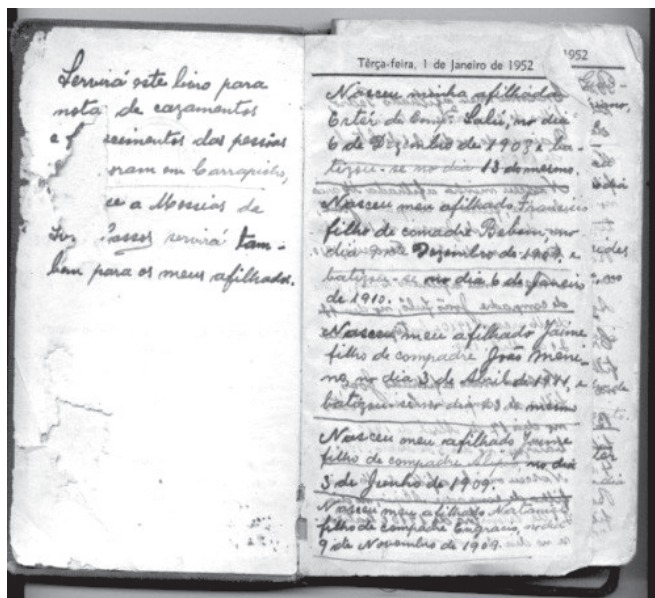 Servirá este livro para
nota de cazamentos
e cimentos das pessôas
oram em Carrapicho,
se a Messias de
Passos servirá tam-
bem para os meus afilhados.
Têrça-feira, 1 de Janeiro de 1952
1952
Nasceu minha afilhada
Estér de Lalú, no dia
6 de Dezembro de 1903 e ba-
tizou-se no dia 13 do mesmo.
Nasceu meu afilhado Francisco
filho de comadre Bebem no
dia de Dezembro de 1909, e
batizou-se no dia 6 de Janeiro
de 1910.
Nasceu meu afilhado Jaime
filho de compadre João Meni-
no, no dia 3 de Abril de 1911, e
batizou-se no dia 23 do mesmo
Nasceu meu afilhado
filho de compadre no dia
3 de Junho de 1909.
Nasceu meu afilhado
filho de compadre Engracio, no dia
9 de Novembro de 1909.